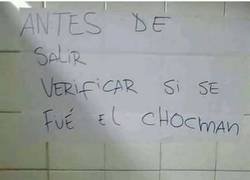 ANTES DE
SALIR
VERIFICAR SI SE
FUÉ EL CHOCMAN